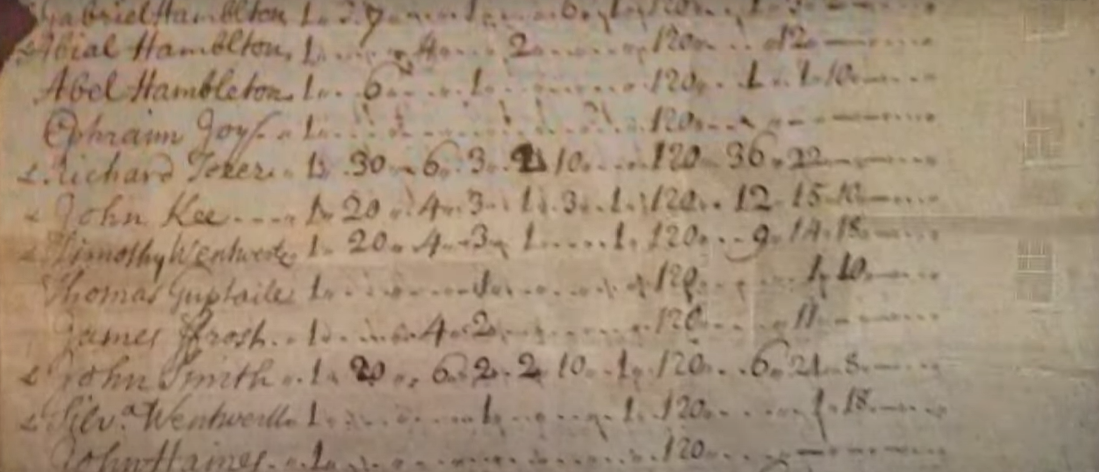 Gabriel Hamblton 1 3 7 1 6 1 120 1 3
Abial Hamblton 1 4 2 120 12
Abel Hambleton 1 6 1 120 1 1 10
Ephraim Joy 1 120
Richard Tozer 1 30 6 3 2 10 120 36 22
John Kee 1 20 4 3 1 3 1 120 12 15 10
Timothy Wentworth 1 20 4 3 1 1 120 9 14 18
Thomas Guptaile 1 1 120 1 10
James ffrost 1 4 2 120 11
John Smith 1 20 6 2 2 10 1 120 6 21 8
Silv.a Wentworth 1 1 1 120 1 18
John Haines 1 120